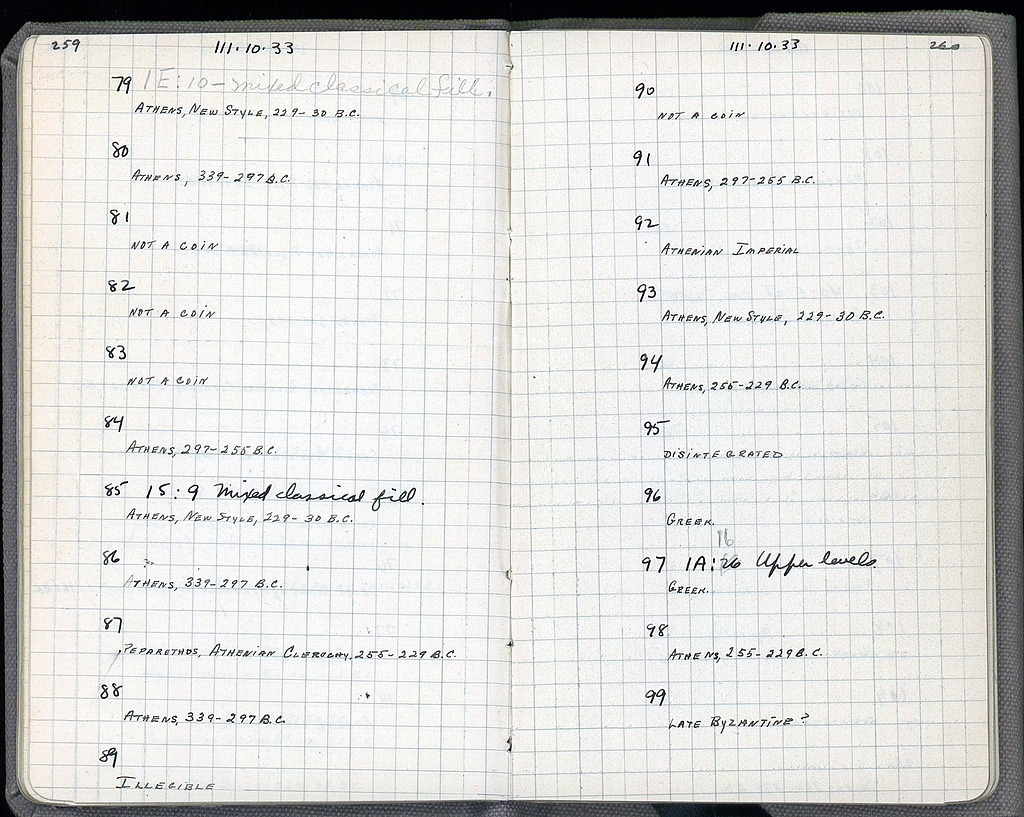 259
111·10·33
79 1E:10 - mixed classical fill.
ATHENS, NEW STYLE, 229-30 B.C.
80
ATHENS, 339-297 B.C.
81
NOT A COIN
82
NOT A COIN
83
NOT A COIN
84
ATHENS, 297-255 B.C.
85 15:9 Mixed classical fill.
ATHENS, NEW STYLE, 229-30 B.C.
86
ATHENS, 339-297 B.C.
87
PEPARETHOS, ATHENIAN CLERUCHY, 255-229 B.C.
88
ATHENS, 339-297 B.C.
89
ILLEGIBLE
111·10·33
260
90
NOT A COIN
91
ATHENS, 297-255 B.C.
92
ATHENIAN IMPERIAL
93
ATHENS, NEW STYLE, 229-30 B.C.
94
ATHENS, 255-229 B.C.
95
DISINTEGRATED
96
GREEK.
16
97 1A:26 Upper levels.
GREEK.
98
ATHENS, 255-229 B.C.
99
LATE BYZANTINE?